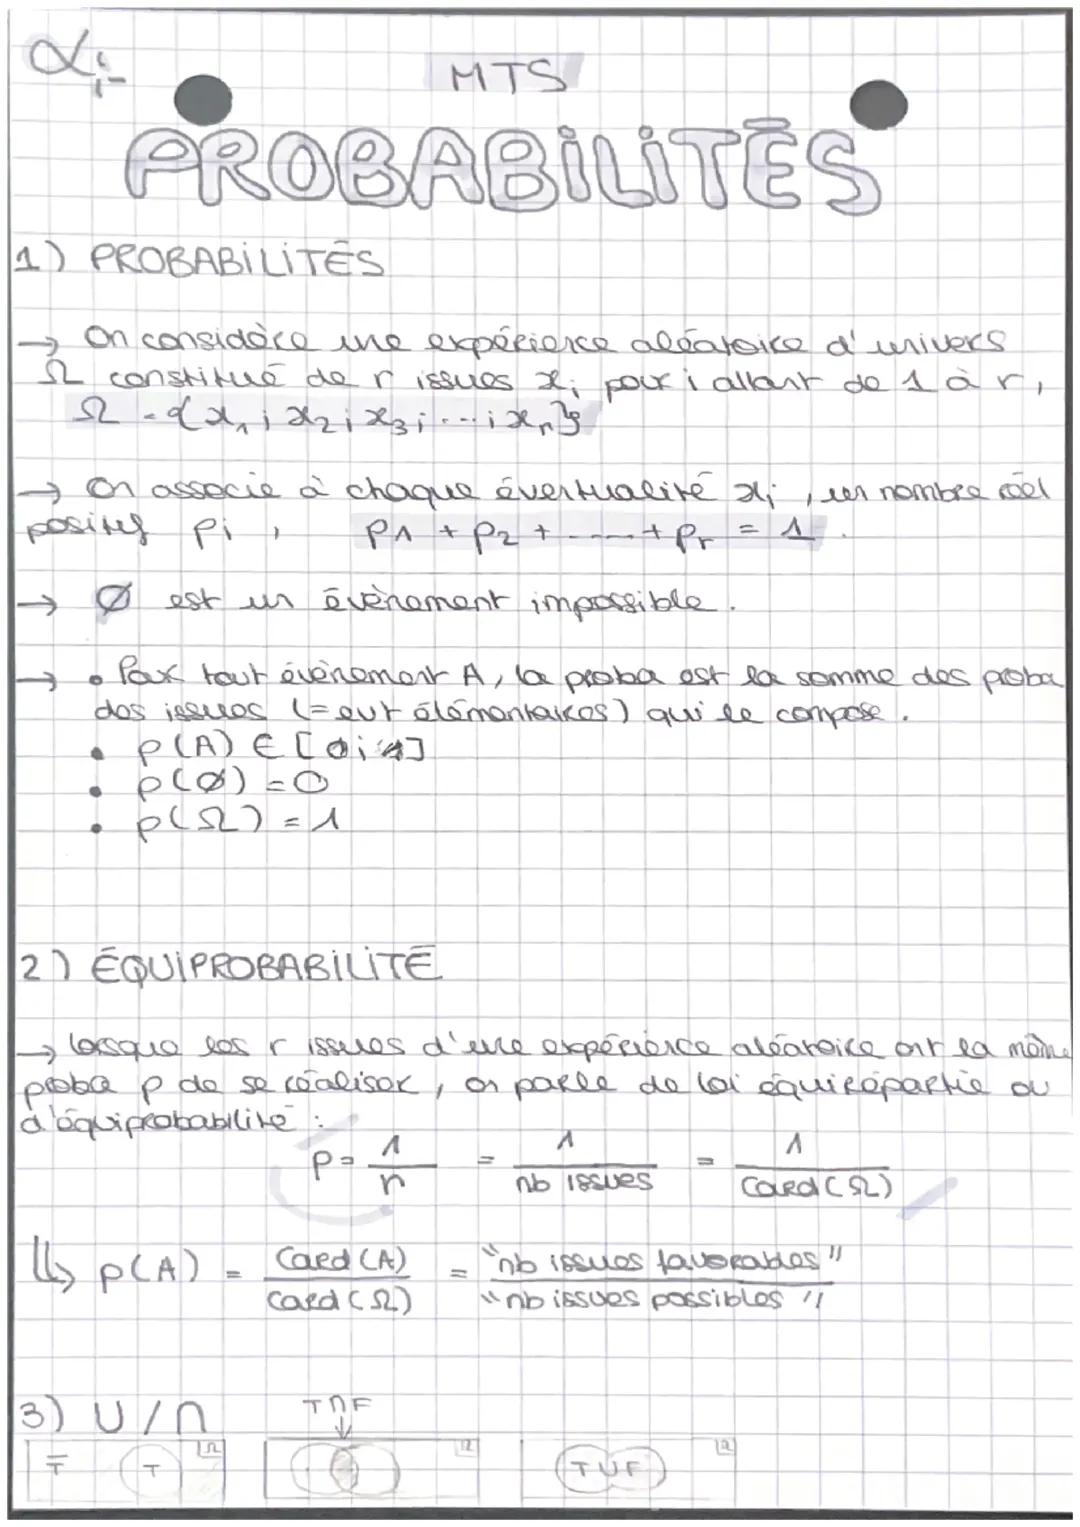 xi
MTS
PROBABILITÉS
1) PROBABILITÉS
→ On considère une expérience aléatoire d'univers
Ω constitué de r issues xi pour i allant de 1 à r,
Ω = {x1 ; x2 ; x3 ; ... ; xr}
→ On associe à chaque éventualité xi, un nombre réel
positif pi, p1 + p2 + ..... + pr = 1.
→ Ø est un évènement impossible.
→ • Pour tout évènement A, la proba est la somme des proba
des issues (= evt élémentaires) qui le compose.
• p(A) ∈ [0;1]
• p(Ø) = 0
• p(Ω) = 1
2) ÉQUIPROBABILITÉ
→ lorsque les r issues d'une expérience aléatoire ont la même
proba p de se réaliser, on parle de loi équirépartie ou
d'équiprobabilité :
p = 1/r = 1/nb issues = 1/Card(Ω)
↳ p(A) = Card(A)/Card(Ω) = "nb issues favorables"/"nb issues possibles"
3) U / ∩
T∩F
T̄ T Ω Ω T U F Ω